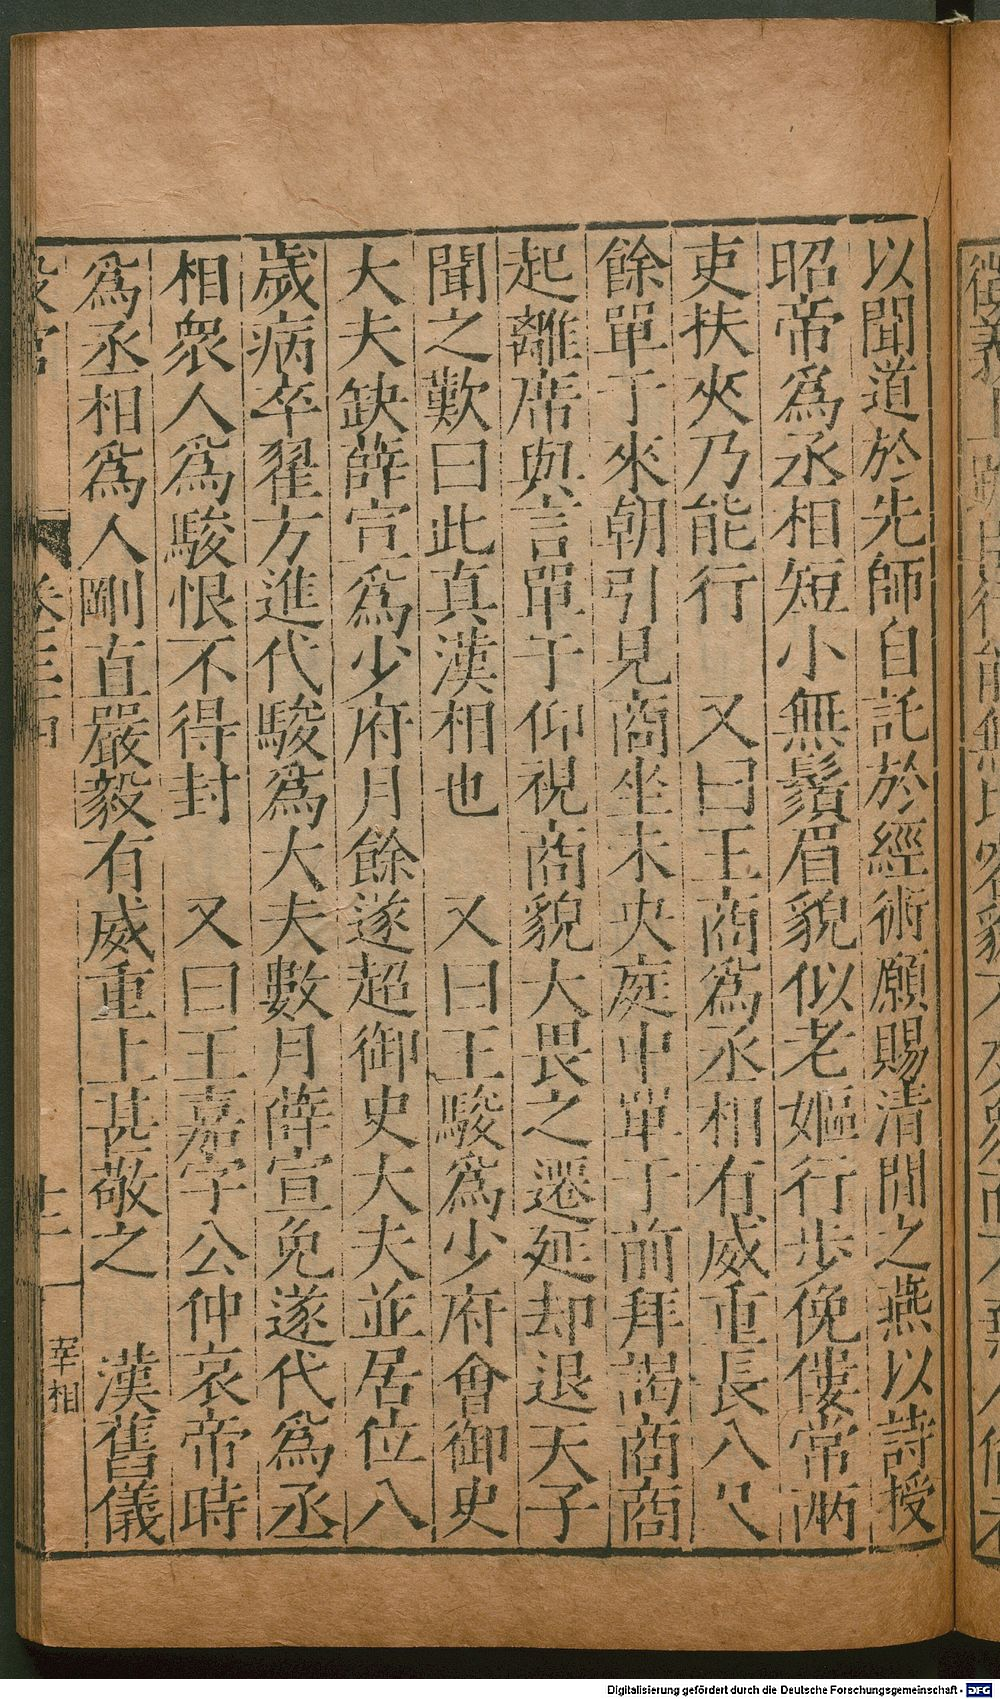 以聞道於先師自託於經術願賜清閒之燕以詩授
昭帝爲丞相短小無鬚眉貌似老嫗行步俛僂常兩
吏扶夾乃能行　又曰王商爲丞相有威重長八尺
餘單于來朝引見商坐未央庭中單于前拜謁商商
起離席與言單于仰視商貌大畏之遷延却退天子
聞之歎曰此真漢相也　又曰王駿爲少府會御史
大夫缺薛宣爲少府月餘遂超御史大夫並居位八
歲病卒翟方進代駿爲大夫數月薛宣免遂代爲丞
相衆人爲駿恨不得封　又曰王嘉字公仲哀帝時
爲丞相爲人剛直嚴毅有威重上甚敬之　漢舊儀
宰相
Digitalisierung gefördert durch die Deutsche Forschungsgemeinschaft - DFG